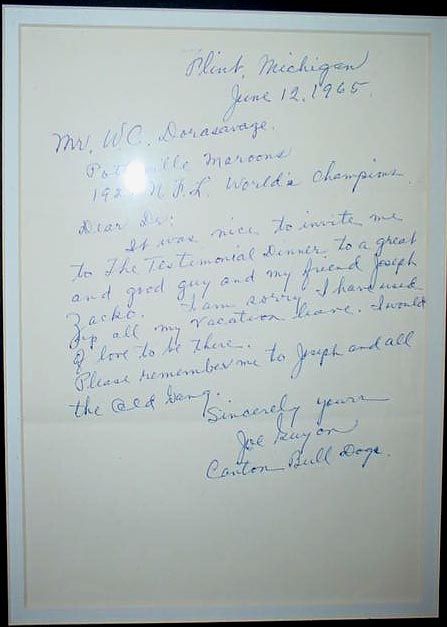 Flint, Michigan
June 12, 1965.
Mr. W.C. Dorasavage.
Pottsville Maroons
192 N.F.L. World's Champions
Dear Dr:
It was nice to invite me
to The Testimonial Dinner to a great
and good guy and my friend Joseph
Zacko. I am sorry I have used
up all my vacation leave. I would
love to be there.
Please remember me to Joseph and all
the Old Gang.
Sincerely yours
Joe Guyon
Canton Bull Dogs.